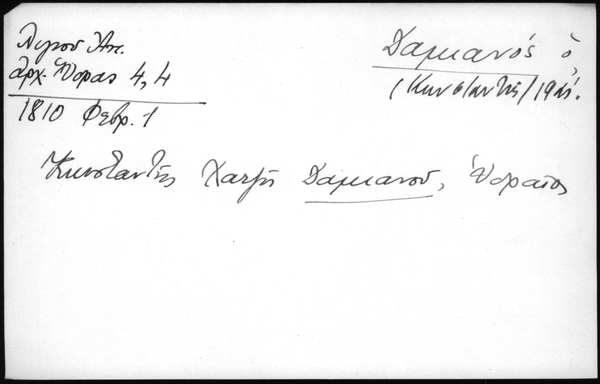 Λιγνού Ἀντ.
ἀρχ. Ὕδρας 4, 4
1810 Φεβρ. 1
Δαμιανός ὁ,
(Κωνσταντής)
Κωνσταντής Χατζῆ Δαμιανοῦ, Ὑδραῖος